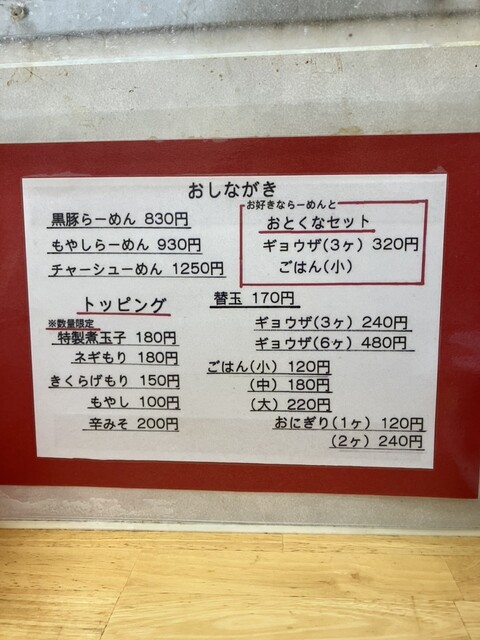 おしながき
黒豚らーめん 830円
もやしらーめん 930円
チャーシューめん 1250円
お好きならーめんと
おとくなセット
ギョウザ(3ヶ) 320円
ごはん(小)
トッピング
※数量限定
特製煮玉子 180円
ネギもり 180円
きくらげもり 150円
もやし 100円
辛みそ 200円
替玉 170円
ギョウザ(3ヶ) 240円
ギョウザ(6ヶ) 480円
ごはん(小) 120円
(中) 180円
(大) 220円
おにぎり(1ヶ) 120円
(2ヶ) 240円